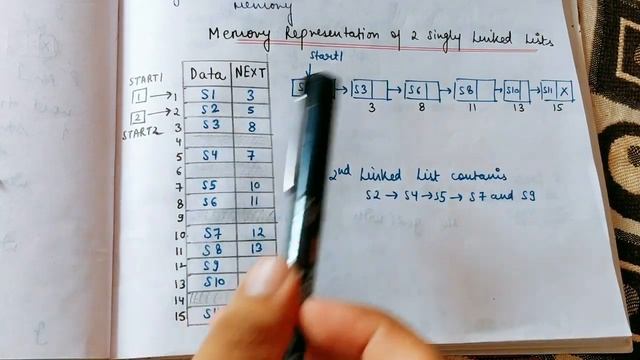 Memory
Memory Representation of 2 Singly Linked Lists
Start1
START1
1
START2
2
Data NEXT
1 S1 3
2 S2 5
3 S3 8
4
5 S4 7
6
7 S5 10
8 S6 11
9
10 S7 12
11 S8 13
12 S9
13 S10
14
15
S3 S6 S8 S10 S11 X
3 8 11 13 15
2nd Linked List contains
S2 → S4 → S5 → S7 and S9